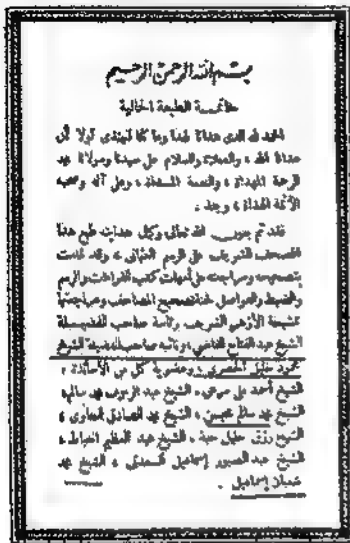 بسم الله الرحمن الرحيم
خاتمة الطبعة الحالية
الحمد لله الذي هدانا لهذا وما كنا لنهتدى لولا أن
هدانا الله ، والصلاة والسلام على سيدنا ومولانا محمد
الرحمة المهداة ، والنعمة المسداة ، وعلى آله وصحبه
الأئمة الهداة ، وبعد .
فقد تم بعون الله تعالى وكمال هدايته طبع هذا
المصحف الشريف على الرسم العثمانى ، وقد قامت
بتصحيحه ومراجعته على أمهات كتب القراءات والرسم
والضبط والفواصل لجنة تصحيح المصاحف ومراجعتها
بمشيخة الأزهر الشريف برئاسة صاحب الفضيلة
الشيخ عبد الفتاح القاضى ، ونائبه صاحب الفضيلة الشيخ
محمود خليل الحصرى ، وعضوية كل من الأساتذة :
الشيخ أحمد على مرعى ، الشيخ عبد الرءوف محمد سالم ،
الشيخ محمد سالم محيسن ، الشيخ محمد الصادق قمحاوى ،
الشيخ رزق خليل حبة ، الشيخ عبد العظيم الخياط ،
الشيخ عبد الصبور إسماعيل السعدنى ، الشيخ محمد
إسماعيل .